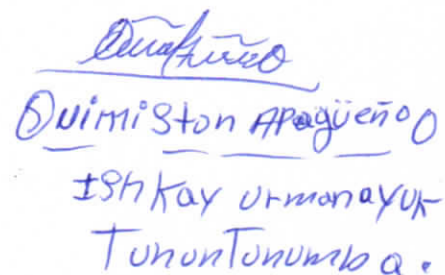 Quimiston Apagüeño O
Ishkay urmanayuk
Tunun Tunumba.